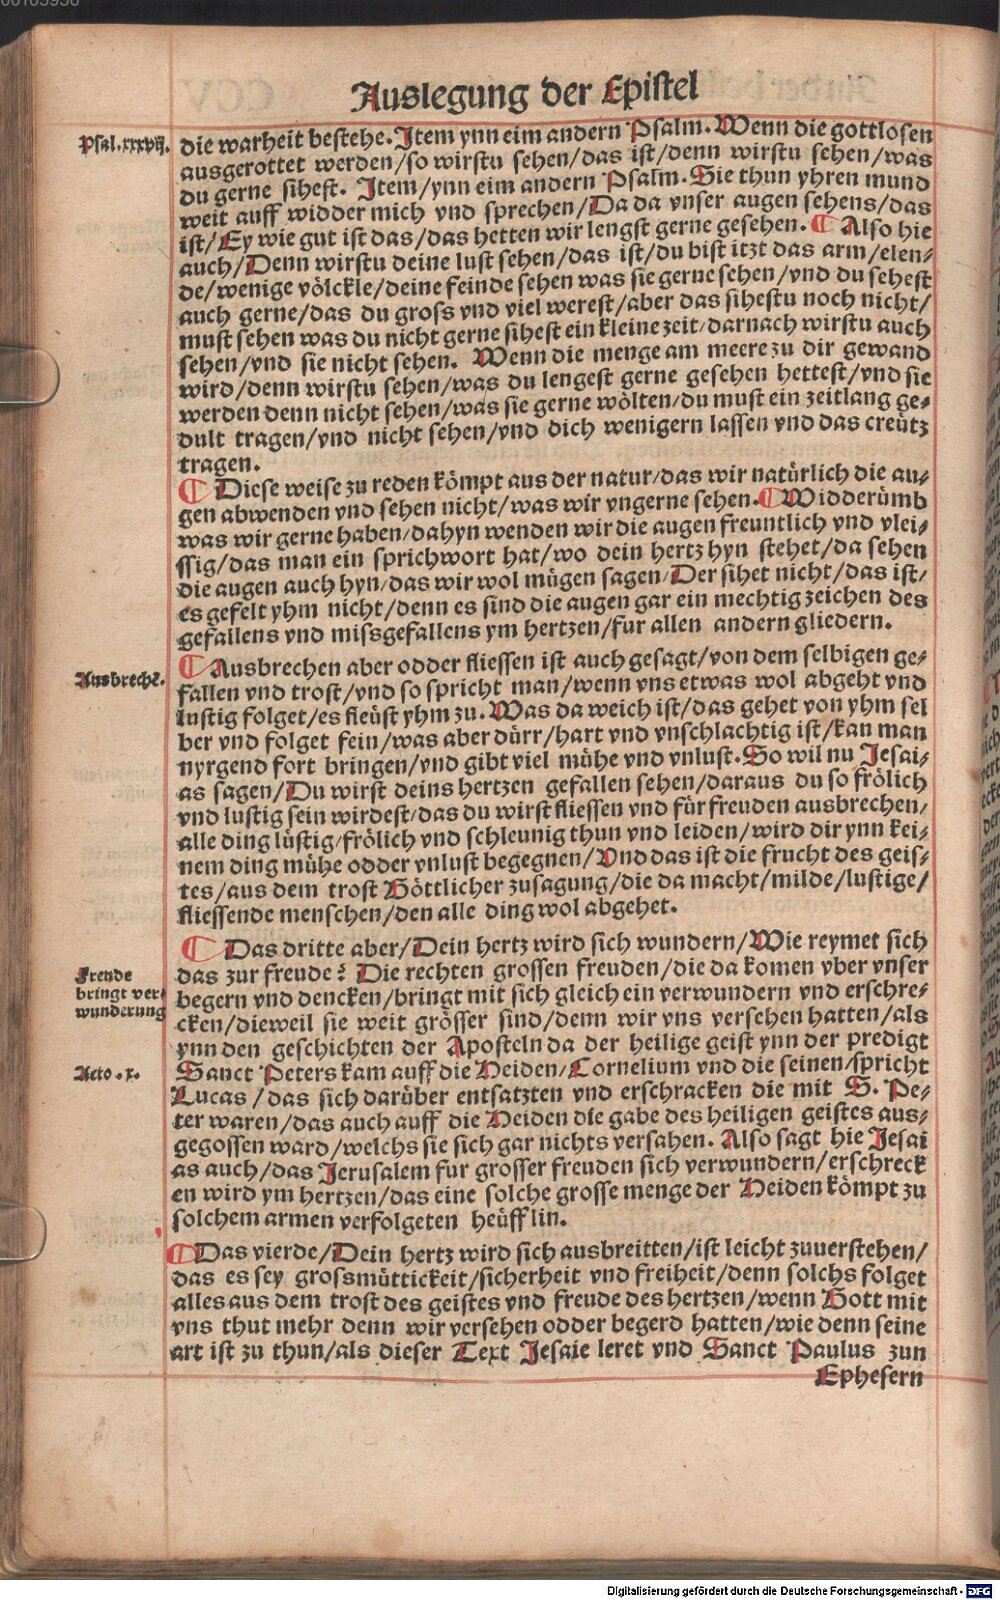 00105956
Auslegung der Epistel
Psal. xxxvij.
die warheit bestehe. Item ynn eim andern Psalm. Wenn die gottlosen
ausgerottet werden/so wirstu sehen/das ist/denn wirstu sehen/was
du gerne sihest. Item/ynn eim andern Psalm. Sie thun yhren mund
weit auff widder mich vnd sprechen/Da da vnser augen sehens/das
ist/Ey wie gut ist das/das hetten wir lengst gerne gesehen. ¶ Also hie
auch/Denn wirstu deine lust sehen/das ist/du bist itzt das arm/elen⸗
de/wenige völckle/deine feinde sehen was sie gerne sehen/vnd du sehest
auch gerne/das du gross vnd viel werest/aber das sihestu noch nicht/
must sehen was du nicht gerne sihest ein kleine zeit/darnach wirstu auch
sehen/vnd sie nicht sehen. Wenn die menge am meere zu dir gewand
wird/denn wirstu sehen/was du lengest gerne gesehen hettest/vnd sie
werden denn nicht sehen/was sie gerne wölten/du must ein zeitlang ge⸗
dult tragen/vnd nicht sehen/vnd dich wenigern lassen vnd das creütz
tragen.
¶ Diese weise zu reden kömpt aus der natur/das wir natürlich die au⸗
gen abwenden vnd sehen nicht/was wir vngerne sehen. ¶ Widderümb
was wir gerne haben/dahyn wenden wir die augen freuntlich vnd vlei⸗
ssig/das man ein sprichwort hat/wo dein hertz hyn stehet/da sehen
die augen auch hyn/das wir wol mügen sagen/Der sihet nicht/das ist/
es gefelt yhm nicht/denn es sind die augen gar ein mechtig zeichen des
gefallens vnd missgefallens ym hertzen/fur allen andern gliedern.
Ausbrechē.
¶ Ausbrechen aber odder fliessen ist auch gesagt/von dem selbigen ge⸗
fallen vnd trost/vnd so spricht man/wenn vns etwas wol abgeht vnd
lustig folget/es fleüst yhm zu. Was da weich ist/das gehet von yhm sel
ber vnd folget fein/was aber dürr/hart vnd vnschlachtig ist/kan man
nyrgend fort bringen/vnd gibt viel mühe vnd vnlust. So wil nu Jesai⸗
as sagen/Du wirst deins hertzen gefallen sehen/daraus du so frölich
vnd lustig sein wirdest/das du wirst fliessen vnd für freuden ausbrechen/
alle ding lüstig/frölich vnd schleunig thun vnd leiden/wird dir ynn kei⸗
nem ding mühe odder vnlust begegnen/Vnd das ist die frucht des geis⸗
tes/aus dem trost Göttlicher zusagung/die da macht/milde/lustige/
fliessende menschen/den alle ding wol abgehet.
¶ Das dritte aber/Dein hertz wird sich wundern/Wie reymet sich
Freude
bringt ver⸗
wunderung
das zur freude? Die rechten grossen freuden/die da komen vber vnser
begern vnd dencken/bringt mit sich gleich ein verwundern vnd erschre⸗
cken/dieweil sie weit grösser sind/denn wir vns versehen hatten/als
ynn den geschichten der Aposteln da der heilige geist ynn der predigt
Acto. x.
Sanct Peters kam auff die Heiden/Cornelium vnd die seinen/spricht
Lucas/das sich darüber entsatzten vnd erschracken die mit S. Pe⸗
ter waren/das auch auff die Heiden die gabe des heiligen geistes aus⸗
gegossen ward/welchs sie sich gar nichts versahen. Also sagt hie Jesai
as auch/das Jerusalem fur grosser freuden sich verwundern/erschreck
en wird ym hertzen/das eine solche grosse menge der Heiden kömpt zu
solchem armen verfolgeten heüfflin.
¶ Das vierde/Dein hertz wird sich ausbreitten/ist leicht zuuerstehen/
das es sey grossmüttickeit/sicherheit vnd freiheit/denn solchs folget
alles aus dem trost des geistes vnd freude des hertzen/wenn Gott mit
vns thut mehr denn wir versehen odder begerd hatten/wie denn seine
art ist zu thun/als dieser Text Jesaie leret vnd Sanct Paulus zun
Ephesern
Digitalisierung gefördert durch die Deutsche Forschungsgemeinschaft - DFG